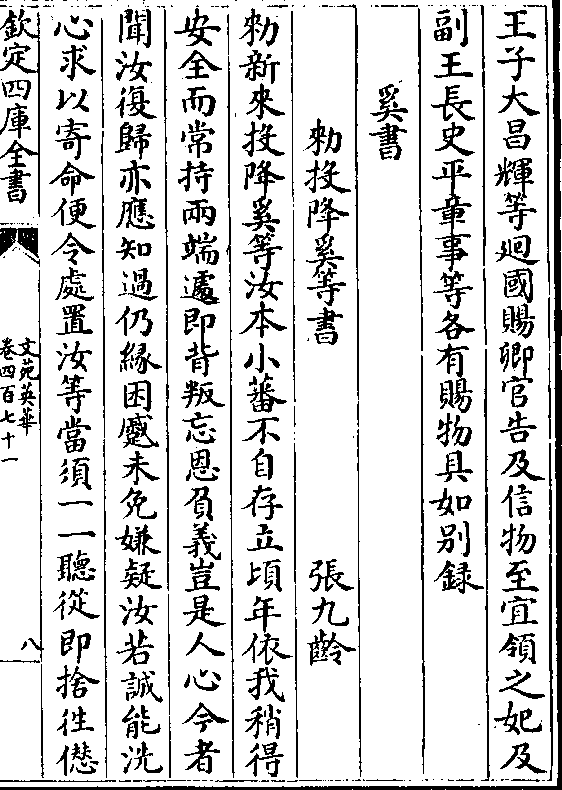 王子大昌輝等廻國賜卿官告及信物至宜領之妃及
副王長史平章事等各有賜物具如别録
奚書
勑投降奚等書
張九齡
勑新來投降奚等汝本小蕃不自存立頃年依我稍得
安全而常持兩端遽即背叛忘恩負義豈是人心今者
聞汝復歸亦應知過仍緣困蹙未免嫌疑汝若誠能洗
心求以寄命便令處置汝等當須一一聽從即捨徃僣
欽定四庫全書
文苑英華
卷四百七十一
八